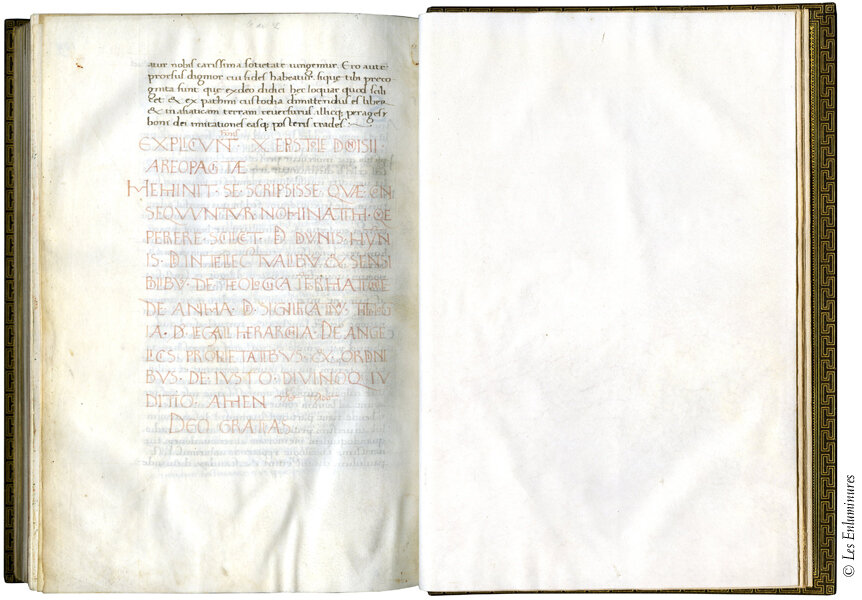 atur nobis carissima societate iungemur. Ero autē
prorsus dignior cui fides habeatur. sique tibi preco
gnita sunt que ex deo didici hec loquar quod scili
cet & ex pathmi custodia dimittendus es liber
& in asiaticam terram reversurus. illicq; perages
boni dei imitationes easq; posteris trades
EXPLICVNT · X EPSTOLE DIONISII
AREOPAGITÆ
MEMINIT · SE · SCRIPSISSE · QVÆ CN
SEQVVNTVR NOMINATIM ·
PERERE · SCILICET · D DIVINIS · HYM
NIS · D INTELLECTVALIBV · & SENSI
BILIBV · DE THEOLOGICA
DE ANIMA · D SIGNIFICATIV ·
IA · D LEGALI HIERARCHIA · DE ANGE
LICIS PROPRIETATIBVS · & ORDINI
BVS · DE IVSTO · DIVINOQ IV
DITIO · AMEN
DEO GRATIAS ·
© Les Enluminures